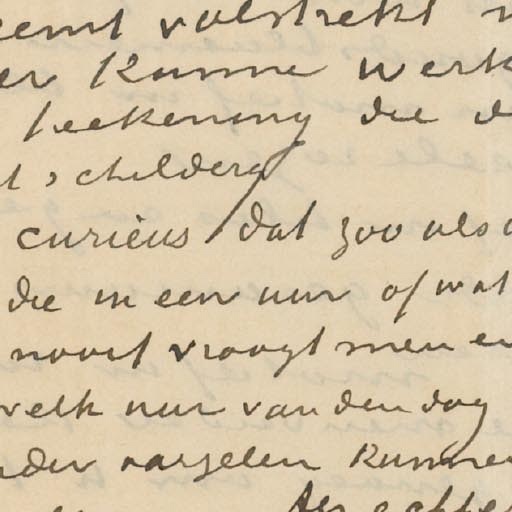 volstrekt
kunne werk
teekening die d
schildert
curieus dat zooals
die in een uur of wat
nooit vraagt men e
welk uur van den dag
nder aarzelen kunnen
Als echter